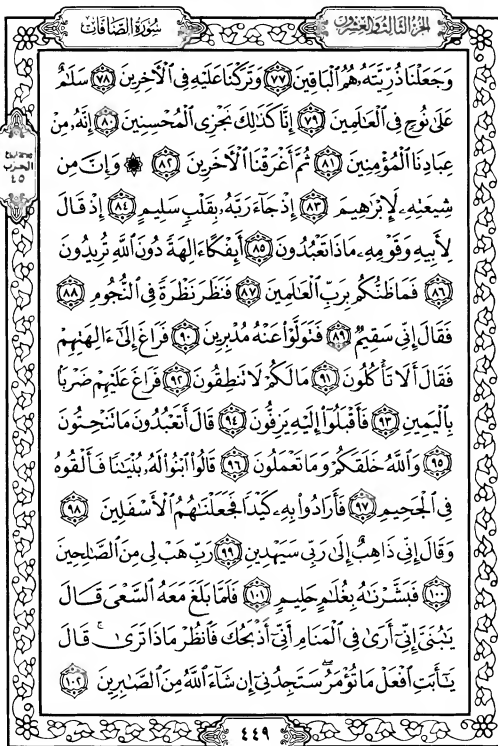 سُورَةُ الصَّافَّاتِ
الجزءُ الثَّالِثُ وَالعِشْرُونَ
وَجَعَلْنَا ذُرِّيَّتَهُۥ هُمُ ٱلْبَاقِينَ ٧٧ وَتَرَكْنَا عَلَيْهِ فِى ٱلْأَخِرِينَ ٧٨ سَلَٰمٌ
عَلَىٰ نُوحٍ فِى ٱلْعَٰلَمِينَ ٧٩ إِنَّا كَذَٰلِكَ نَجْزِى ٱلْمُحْسِنِينَ ٨٠ إِنَّهُۥ مِنْ
عِبَادِنَا ٱلْمُؤْمِنِينَ ٨١ ثُمَّ أَغْرَقْنَا ٱلْأَخَرِينَ ٨٢ ۞ وَإِنَّ مِن
شِيعَتِهِۦ لَإِبْرَٰهِيمَ ٨٣ إِذْ جَآءَ رَبَّهُۥ بِقَلْبٍ سَلِيمٍ ٨٤ إِذْ قَالَ
لِأَبِيهِ وَقَوْمِهِۦ مَاذَا تَعْبُدُونَ ٨٥ أَئِفْكًا ءَالِهَةً دُونَ ٱللَّهِ تُرِيدُونَ
٨٦ فَمَا ظَنُّكُم بِرَبِّ ٱلْعَٰلَمِينَ ٨٧ فَنَظَرَ نَظْرَةً فِى ٱلنُّجُومِ ٨٨
فَقَالَ إِنِّى سَقِيمٌ ٨٩ فَتَوَلَّوْا۟ عَنْهُ مُدْبِرِينَ ٩٠ فَرَاغَ إِلَىٰٓ ءَالِهَتِهِمْ
فَقَالَ أَلَا تَأْكُلُونَ ٩١ مَا لَكُمْ لَا تَنطِقُونَ ٩٢ فَرَاغَ عَلَيْهِمْ ضَرْبًۢا
بِٱلْيَمِينِ ٩٣ فَأَقْبَلُوٓا۟ إِلَيْهِ يَزِفُّونَ ٩٤ قَالَ أَتَعْبُدُونَ مَا تَنْحِتُونَ
٩٥ وَٱللَّهُ خَلَقَكُمْ وَمَا تَعْمَلُونَ ٩٦ قَالُوا۟ ٱبْنُوا۟ لَهُۥ بُنْيَٰنًا فَأَلْقُوهُ
فِى ٱلْجَحِيمِ ٩٧ فَأَرَادُوا۟ بِهِۦ كَيْدًا فَجَعَلْنَٰهُمُ ٱلْأَسْفَلِينَ ٩٨
وَقَالَ إِنِّى ذَاهِبٌ إِلَىٰ رَبِّى سَيَهْدِينِ ٩٩ رَبِّ هَبْ لِى مِنَ ٱلصَّٰلِحِينَ
١٠٠ فَبَشَّرْنَٰهُ بِغُلَٰمٍ حَلِيمٍ ١٠١ فَلَمَّا بَلَغَ مَعَهُ ٱلسَّعْىَ قَالَ
يَٰبُنَىَّ إِنِّىٓ أَرَىٰ فِى ٱلْمَنَامِ أَنِّىٓ أَذْبَحُكَ فَٱنظُرْ مَاذَا تَرَىٰ ۚ قَالَ
يَٰٓأَبَتِ ٱفْعَلْ مَا تُؤْمَرُ ۖ سَتَجِدُنِىٓ إِن شَآءَ ٱللَّهُ مِنَ ٱلصَّٰبِرِينَ ١٠٢
الحزب
٤٥
٤٤٩